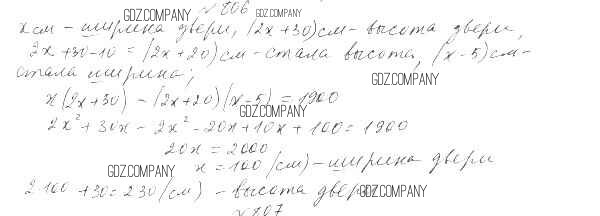 GDZ.COMPANY № 806 GDZ.COMPANY
x см - ширина двери, (2x+30) см - высота двери,
2x+30-10 = (2x+20) см - стала высота, (x-5) см -
стала ширина;
GDZ.COMPANY
x(2x+30) - (2x+20)(x-5) = 1900
GDZ.COMPANY
2x² + 30x - 2x² - 20x + 10x + 100 = 1900
20x = 2000
GDZ.COMPANY x = 100 (см) - ширина двери
2·100 + 30 = 230 (см) - высота двери. GDZ.COMPANY
№ 807